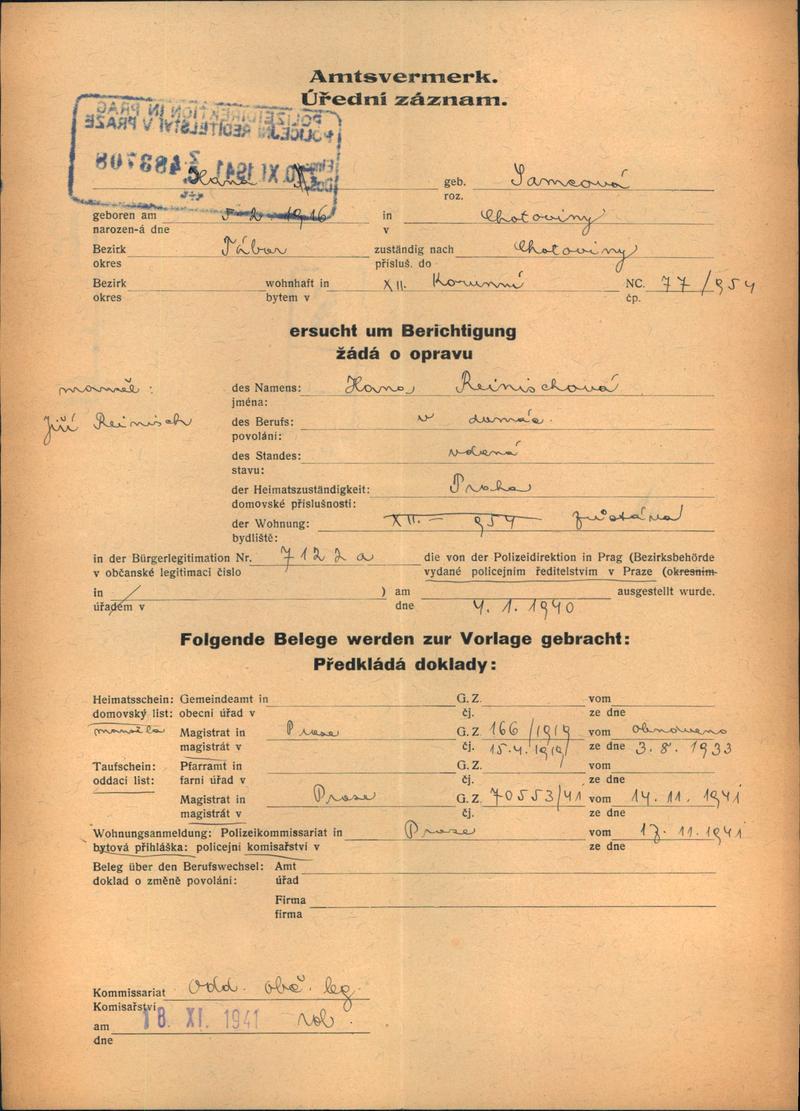 Amtsvermerk.
Úřední záznam.
POLIZEIDIREKTION IN PRAG
POLICEJNÍ ŘEDITELSTVÍ V PRAZE
XI 1941
Hana geb. Samcová
roz.
geboren am 5 2 1916 in Chotoviny
narozen-á dne v
Bezirk Tábor zuständig nach Chotoviny
okres přísluš. do
Bezirk wohnhaft in XII. Korunní NC. 77/954
okres bytem v čp.
ersucht um Berichtigung
žádá o opravu
manžel: des Namens: Hana Reinischová
jména:
Jiří Reinisch des Berufs: v domác.
povolání:
des Standes: vdaná
stavu:
der Heimatszuständigkeit: Praha
domovské příslušnosti:
der Wohnung: XII. — 954 zůstává
bydliště:
in der Bürgerlegitimation Nr. 7122 a die von der Polizeidirektion in Prag (Bezirksbehörde
v občanské legitimaci číslo vydané policejním ředitelstvím v Praze (okresním
in / ) am ausgestellt wurde.
úřadem v dne 4. 1. 1940
Folgende Belege werden zur Vorlage gebracht:
Předkládá doklady:
Heimatsschein: Gemeindeamt in G. Z. vom
domovský list: obecní úřad v čj. ze dne
manžela Magistrat in Praze G. Z. 166/1919 vom obnoveno
magistrát v čj. 15.4.1919 ze dne 3. 8. 1933
Taufschein: Pfarramt in G. Z. vom
oddací list: farní úřad v čj. ze dne
Magistrat in Praze G. Z. 70553/41 vom 14. 11. 1941
magistrát v čj. ze dne
Wohnungsanmeldung: Polizeikommissariat in Praze vom 17. 11. 1941
bytová přihláška: policejní komisařství v ze dne
Beleg über den Berufswechsel: Amt
doklad o změně povolání: úřad
Firma
firma
Kommissariat Odd. obč. leg.
Komisařství
am 18. XI. 1941
dne